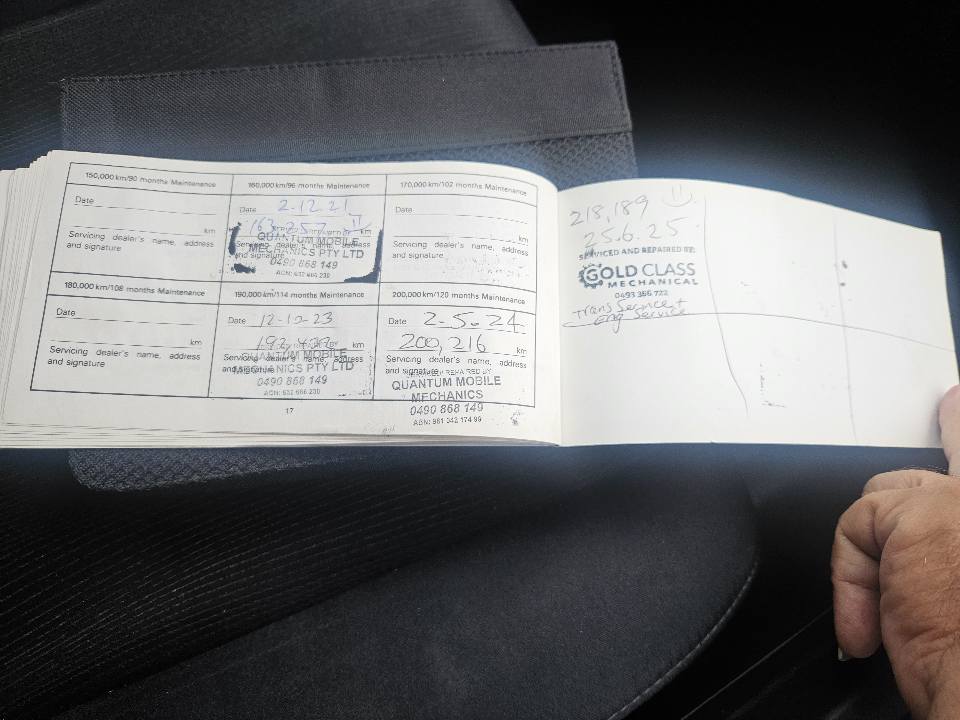 150,000 km/90 months Maintenance
Date
km
Servicing dealer's name, address
and signature
160,000 km/96 months Maintenance
Date 2.12.21
km
Servicing dealer's name, address
and signature
QUANTUM MOBILE
MECHANICS PTY LTD
0490 868 149
170,000 km/102 months Maintenance
Date
km
Servicing dealer's name, address
and signature
180,000 km/108 months Maintenance
Date
km
Servicing dealer's name, address
and signature
190,000 km/114 months Maintenance
Date 12-10-23
km
Servicing dealer's name, address
and signature
QUANTUM MOBILE
MECHANICS PTY LTD
0490 868 149
200,000 km/120 months Maintenance
Date 2-5-24
200,216 km
Servicing dealer's name, address
and signature
REPAIRED BY
QUANTUM MOBILE
MECHANICS
0490 868 149
17
218,189
25.6.25
SERVICED AND REPAIRED BY:
GOLD CLASS
MECHANICAL
0493 386 722
Trans Service +
eng Service